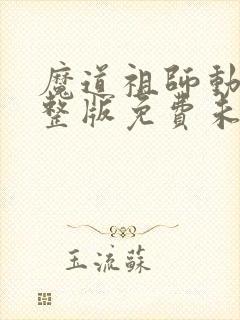 魔道祖師動
整版免費未
玉流蘇